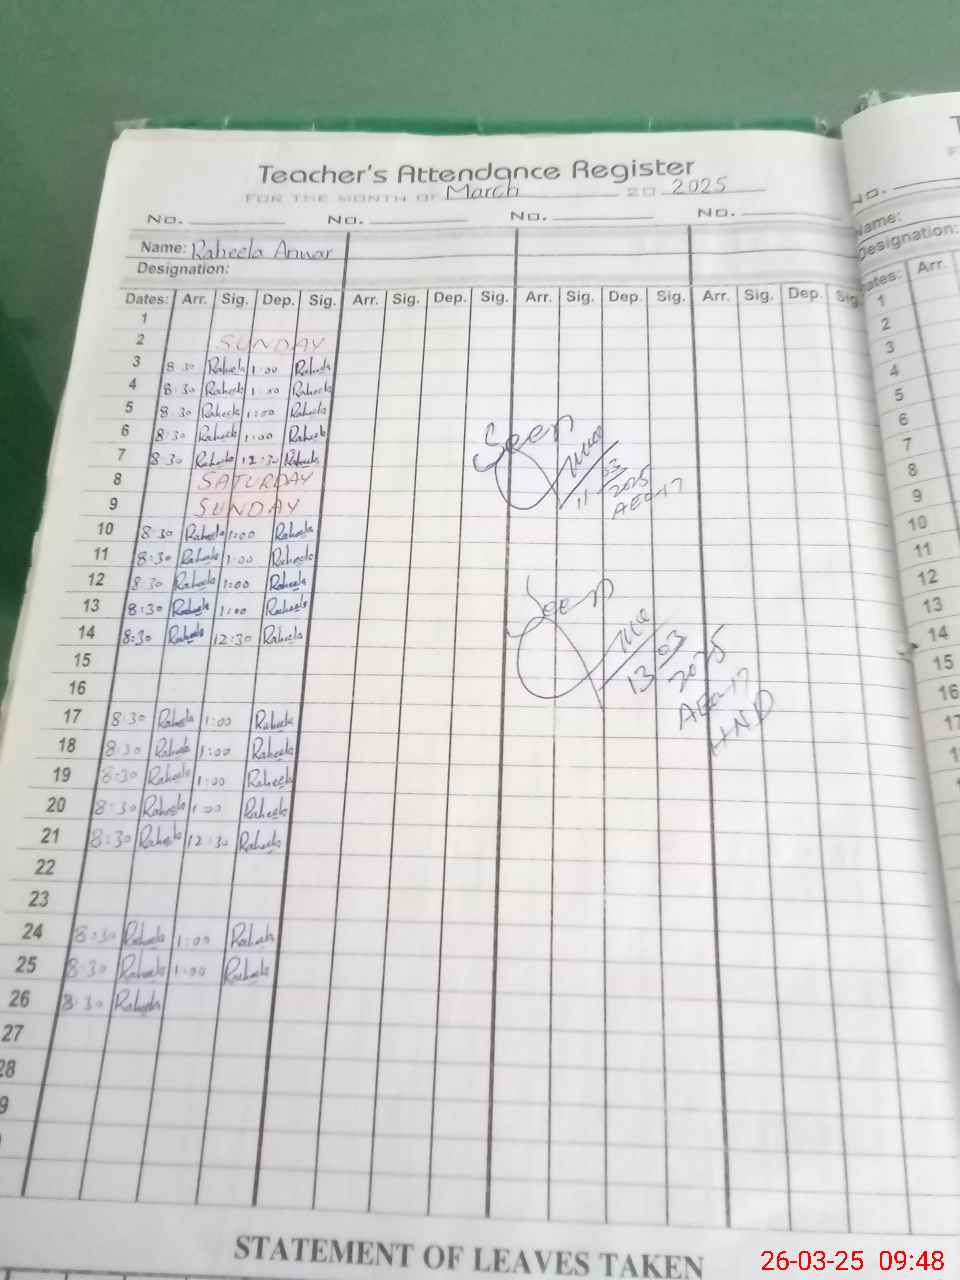 Teacher's Attendance Register
FOR THE MONTH OF March 20 2025
No. No. No. No.
Name: Raheela Anwar
Designation:
Dates: Arr. Sig. Dep. Sig. Arr. Sig. Dep. Sig. Arr. Sig. Dep. Sig. Arr. Sig. Dep. Sig
1
2 SUNDAY
3 8:30 Raheela 1:00 Raheela
4 8:30 Raheela 1:00 Raheela
5 8:30 Raheela 1:00 Raheela
6 8:30 Raheela 1:00 Raheela
7 8:30 Raheela 12:30 Raheela
8 SATURDAY
9 SUNDAY
10 8:30 Raheela 1:00 Raheela
11 8:30 Raheela 1:00 Raheela
12 8:30 Raheela 1:00 Raheela
13 8:30 Raheela 1:00 Raheela
14 8:30 Raheela 12:30 Raheela
15
16
17 8:30 Raheela 1:00 Raheela
18 8:30 Raheela 1:00 Raheela
19 8:30 Raheela 1:00 Raheela
20 8:30 Raheela 1:00 Raheela
21 8:30 Raheela 12:30 Raheela
22
23
24 8:30 Raheela 1:00 Raheela
25 8:30 Raheela 1:00 Raheela
26 8:30 Raheela
27
28
9
Seen
11/03
2025
AEO-17
Seen
13/03
2025
AEO-17
HND
STATEMENT OF LEAVES TAKEN
No.
Name:
Designation:
ates: Arr.
1
2
3
4
5
6
7
8
9
10
11
12
13
14
15
16
17
26-03-25 09:48